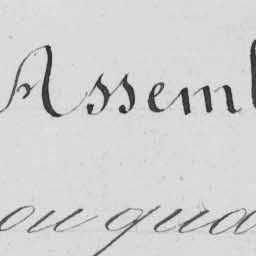 Assembl
ou qua